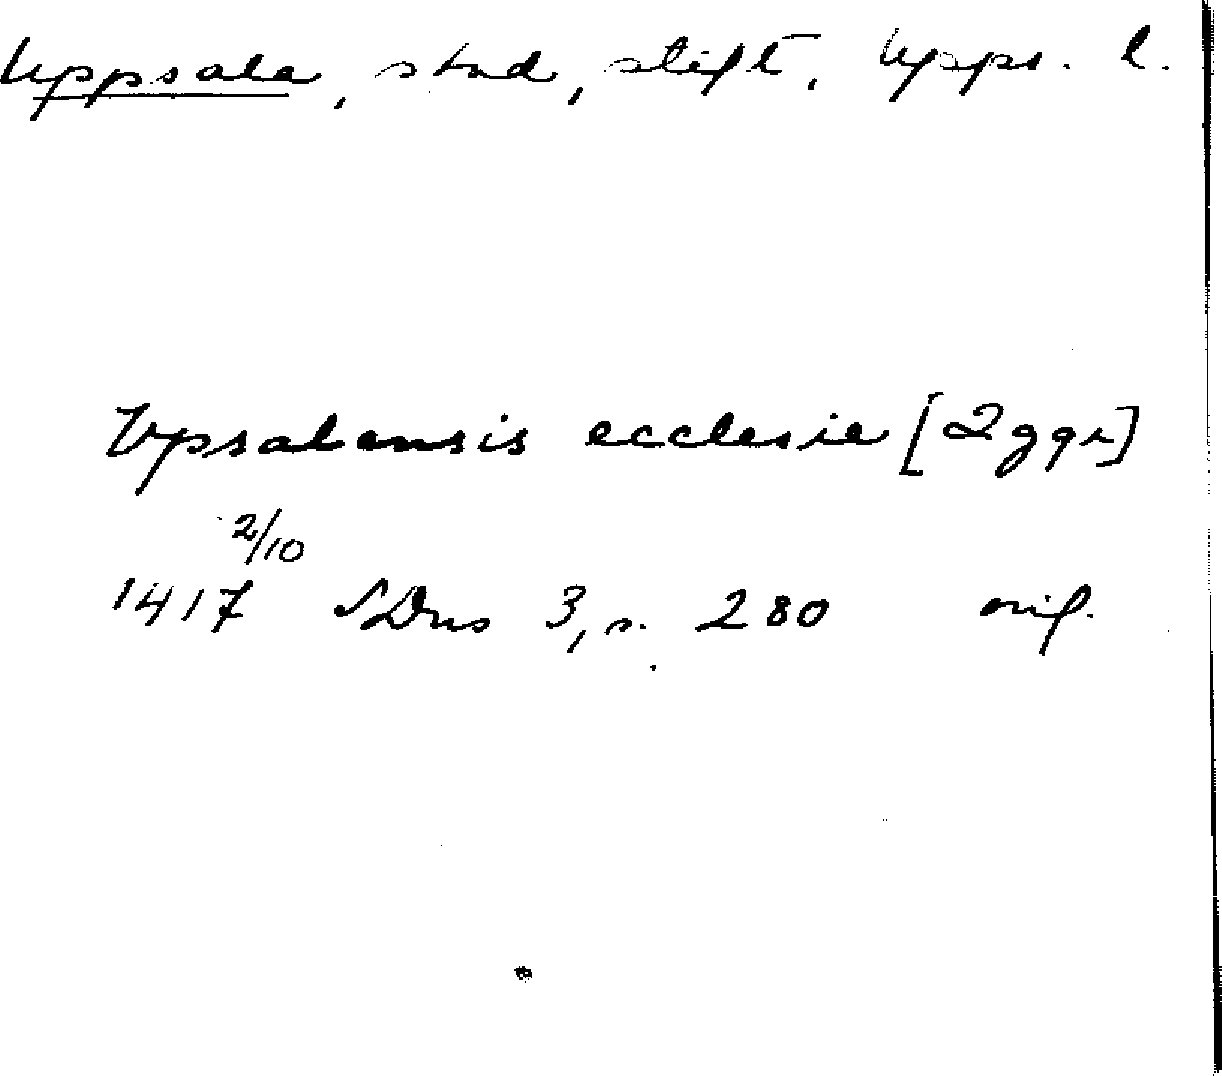 Uppsala, stad, stift, Upps. l.
Vpsalensis ecclesie [2 ggr]
2/10
1417 SDns 3, s. 280 orig.